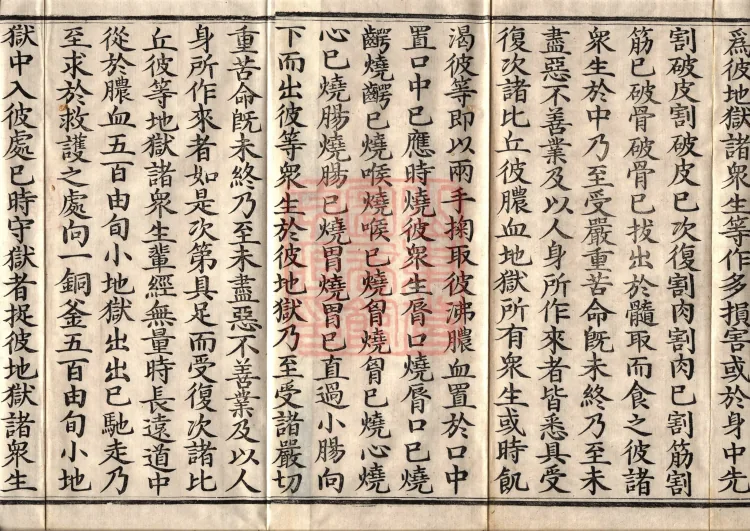 爲彼地獄諸衆生等作多損害或於身中先
割破皮割破皮已次復割肉割肉已割筋割
筋已破骨破骨已拔出於髓取而食之彼諸
衆生於中乃至受嚴重苦命旣未終乃至未
盡惡不善業及以人身所作來者皆悉具受
復次諸比丘彼膿血地獄所有衆生或時飢
渴彼等即以兩手掬取彼沸膿血置於口中
置口中已應時燒彼衆生脣口燒脣口已燒
齶燒齶已燒喉燒喉已燒胷燒胷已燒心燒
心已燒腸燒腸已燒胃燒胃已直過小腸向
下而出彼等衆生於彼地獄乃至受諸嚴切
重苦命旣未終乃至未盡惡不善業及以人
身所作來者如是次第具足而受復次諸比
丘彼等地獄諸衆生輩經無量時長遠道中
從於膿血五百由旬小地獄出出已馳走乃
至求於救護之處向一銅釜五百由旬小地
獄中入彼處已時守獄者捉彼地獄諸衆生